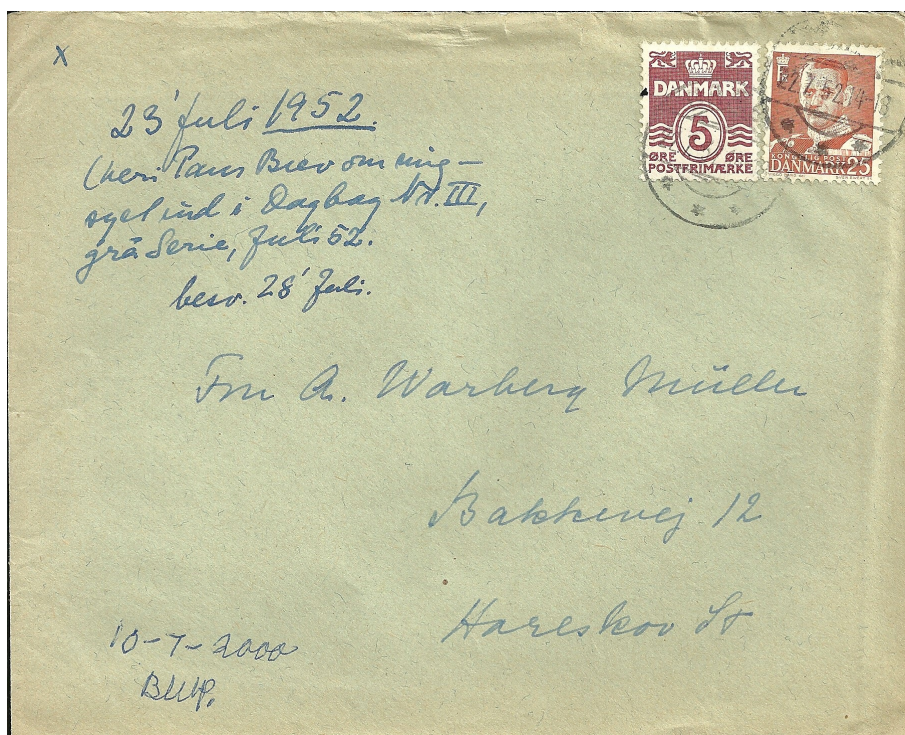 x
23' Juli 1952.
Brev om mig -
syet ind i Dagbog Nr. III,
grå Serie, Juli 52.
besv. 28' Juli.
DANMARK
5
ØRE ØRE
POSTFRIMÆRKE
22.7.52.14-18
KONGELIG POST
DANMARK 25
Fru A. Warberg Müller
Bakkevej 12
Hareskov St
10-7-2000